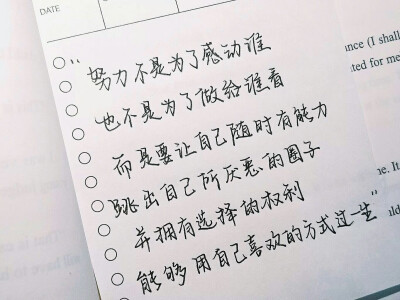 DATE
“努力不是为了感动谁
也不是为了做给谁看
而是要让自己随时有能力
跳出自己所厌恶的圈子
并拥有选择的权利
能够用自己喜欢的方式过一生”
ance (I shall
ted for me
ne. It